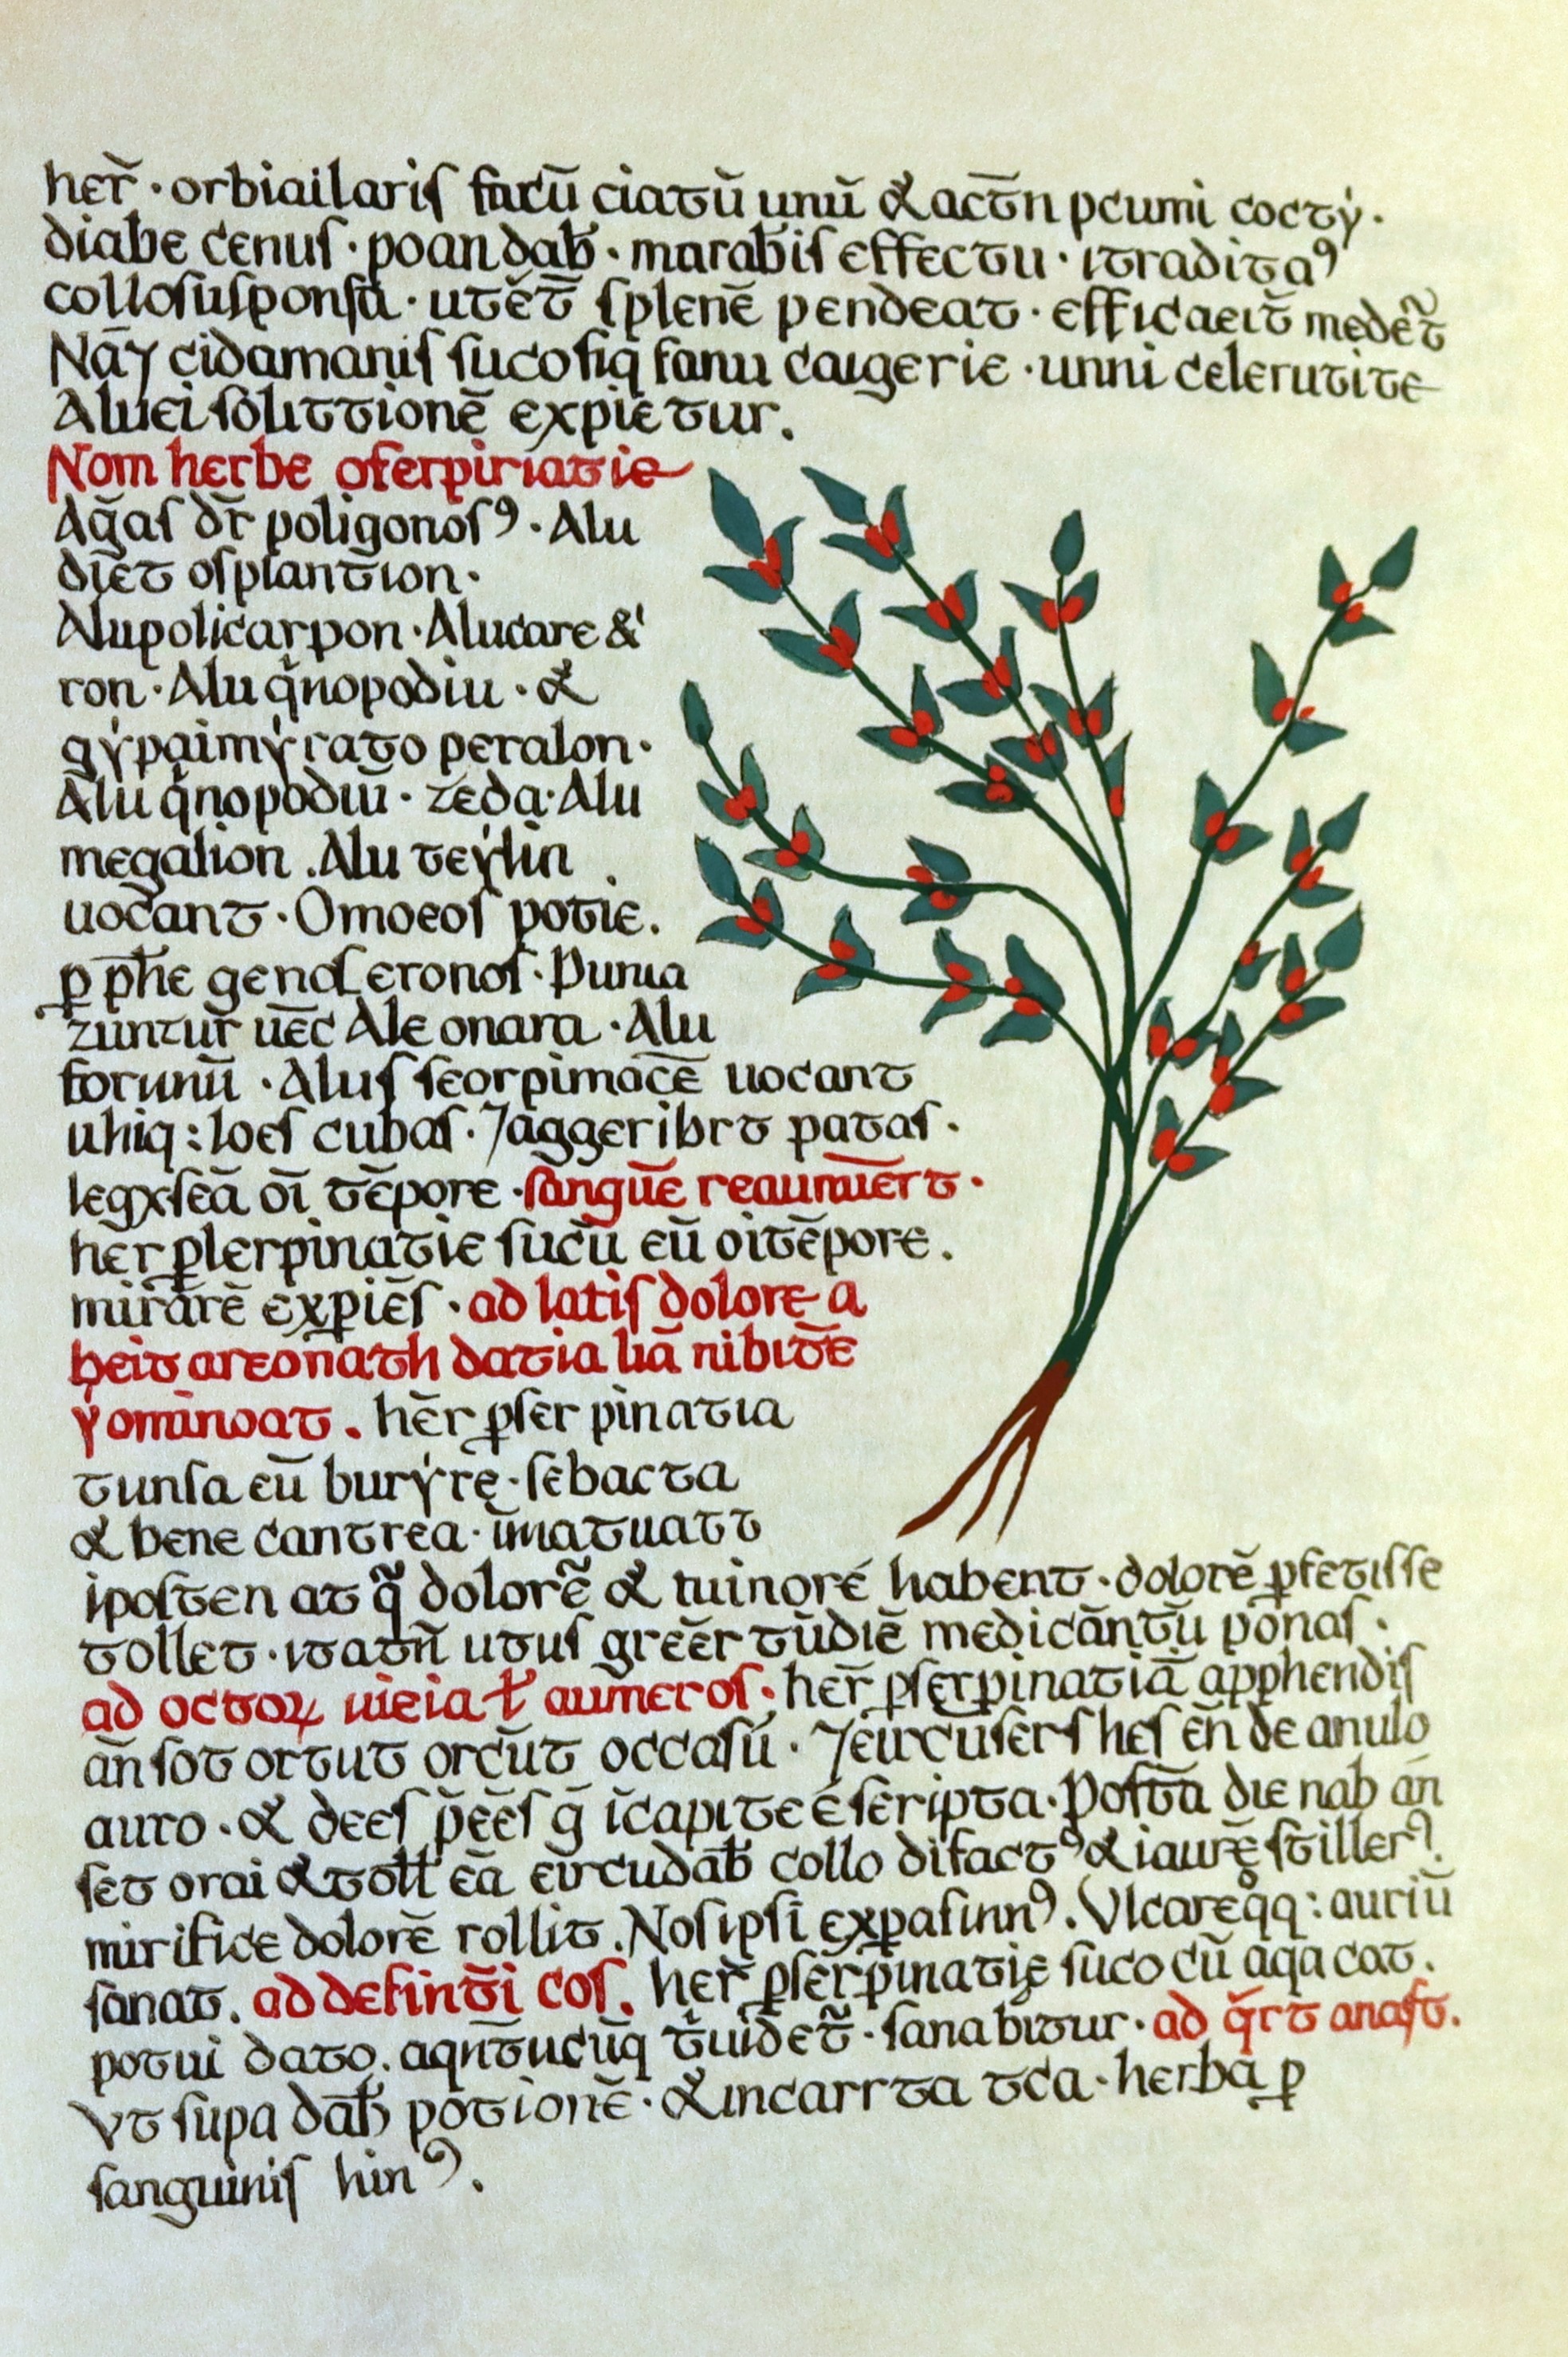 her̄ · orbiailaris fucū ciatū unū & act̄n pcumi coctẏ ·
diabe cenus · poan dab̄ · marabis effectu · itradita⁹
collosusponsa · utēt̄ splenē pendeat · efficaeit̄ medēt̃
Nāỿ cidamanis sucosiq fanu caigerie · unni celerutite
Aluei solittionē expietur.
Nom herbe oferpiriatie
Aḡas dr̄ poligonos⁹ · Alu
diēt osplantion ·
Alupolicarpon · Alucare &'
ron · Alu q̇nopodiu · &
gẏpaimẏrato peralon ·
Alu q̇nopodiū · zeda · Alu
megalion . Alu teẏlin
uocant · Omoeos potie .
ꝑ ph̄e gend eronos · Punia
zuntur̄ uēc Ale onara · Alu
forunū · Alus scorpimacē uocant
uhiq : loes cubas · 7aggeribrt patas .
legxseā oī tēpore · sānguīe reaumīert ·
her ꝑlerpinatie sucū eū oitēpore .
mirārē expiēs · ad latis dolore a
heit areonath datia liā nibitē
ẏominoat . hēr ꝑser pinatia
tunsa eū burẏrę · sebacta
& bene cantrea · im̄atuatt
iposten at q̃ dolorē̃ & tuinoré habent · dolorē ꝑfetisse
tollet · itatn̄ utus greēr tūdiē medicānt̄u ponas ·
ad octoꝝ uieia ł aumeros · her̄ ꝑserpinatiā apphendis
an̄ sot ortut orcūt occasū · 7eircusers hes ēn de anulo
auro · & dees p̄eēs ḡ īcapite é scripta · Posta die nab an̄
set orai & toll̄ eā circudab̄ collo difact⁹ & iaurę stiller⁹.
mirifice dolorē rollit . Nosipsi exꝑasinn⁹ . Ulcareq̊q : auriū
sanat . ad defint̄i cos . her̄ ꝑserpinatię suco cū aqa cat .
potui dato . aqn̄tucūq t̄uidēt̃ · sanabitur · ad q̄rt anast .
Vt supa dab̄ pōtionē · & incarrta tca · herba ꝑ
sanguinis hin⁹ .